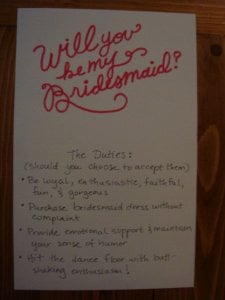 Will you
be my
Bridesmaid?
The Duties:
(should you choose to accept them)
• Be loyal, enthusiastic, faithful,
fun, & gorgeous
• Purchase bridesmaid dress without
complaint
• Provide emotional support & maintain
your sense of humor
• Hit the dance floor with butt-
shaking enthusiasm!